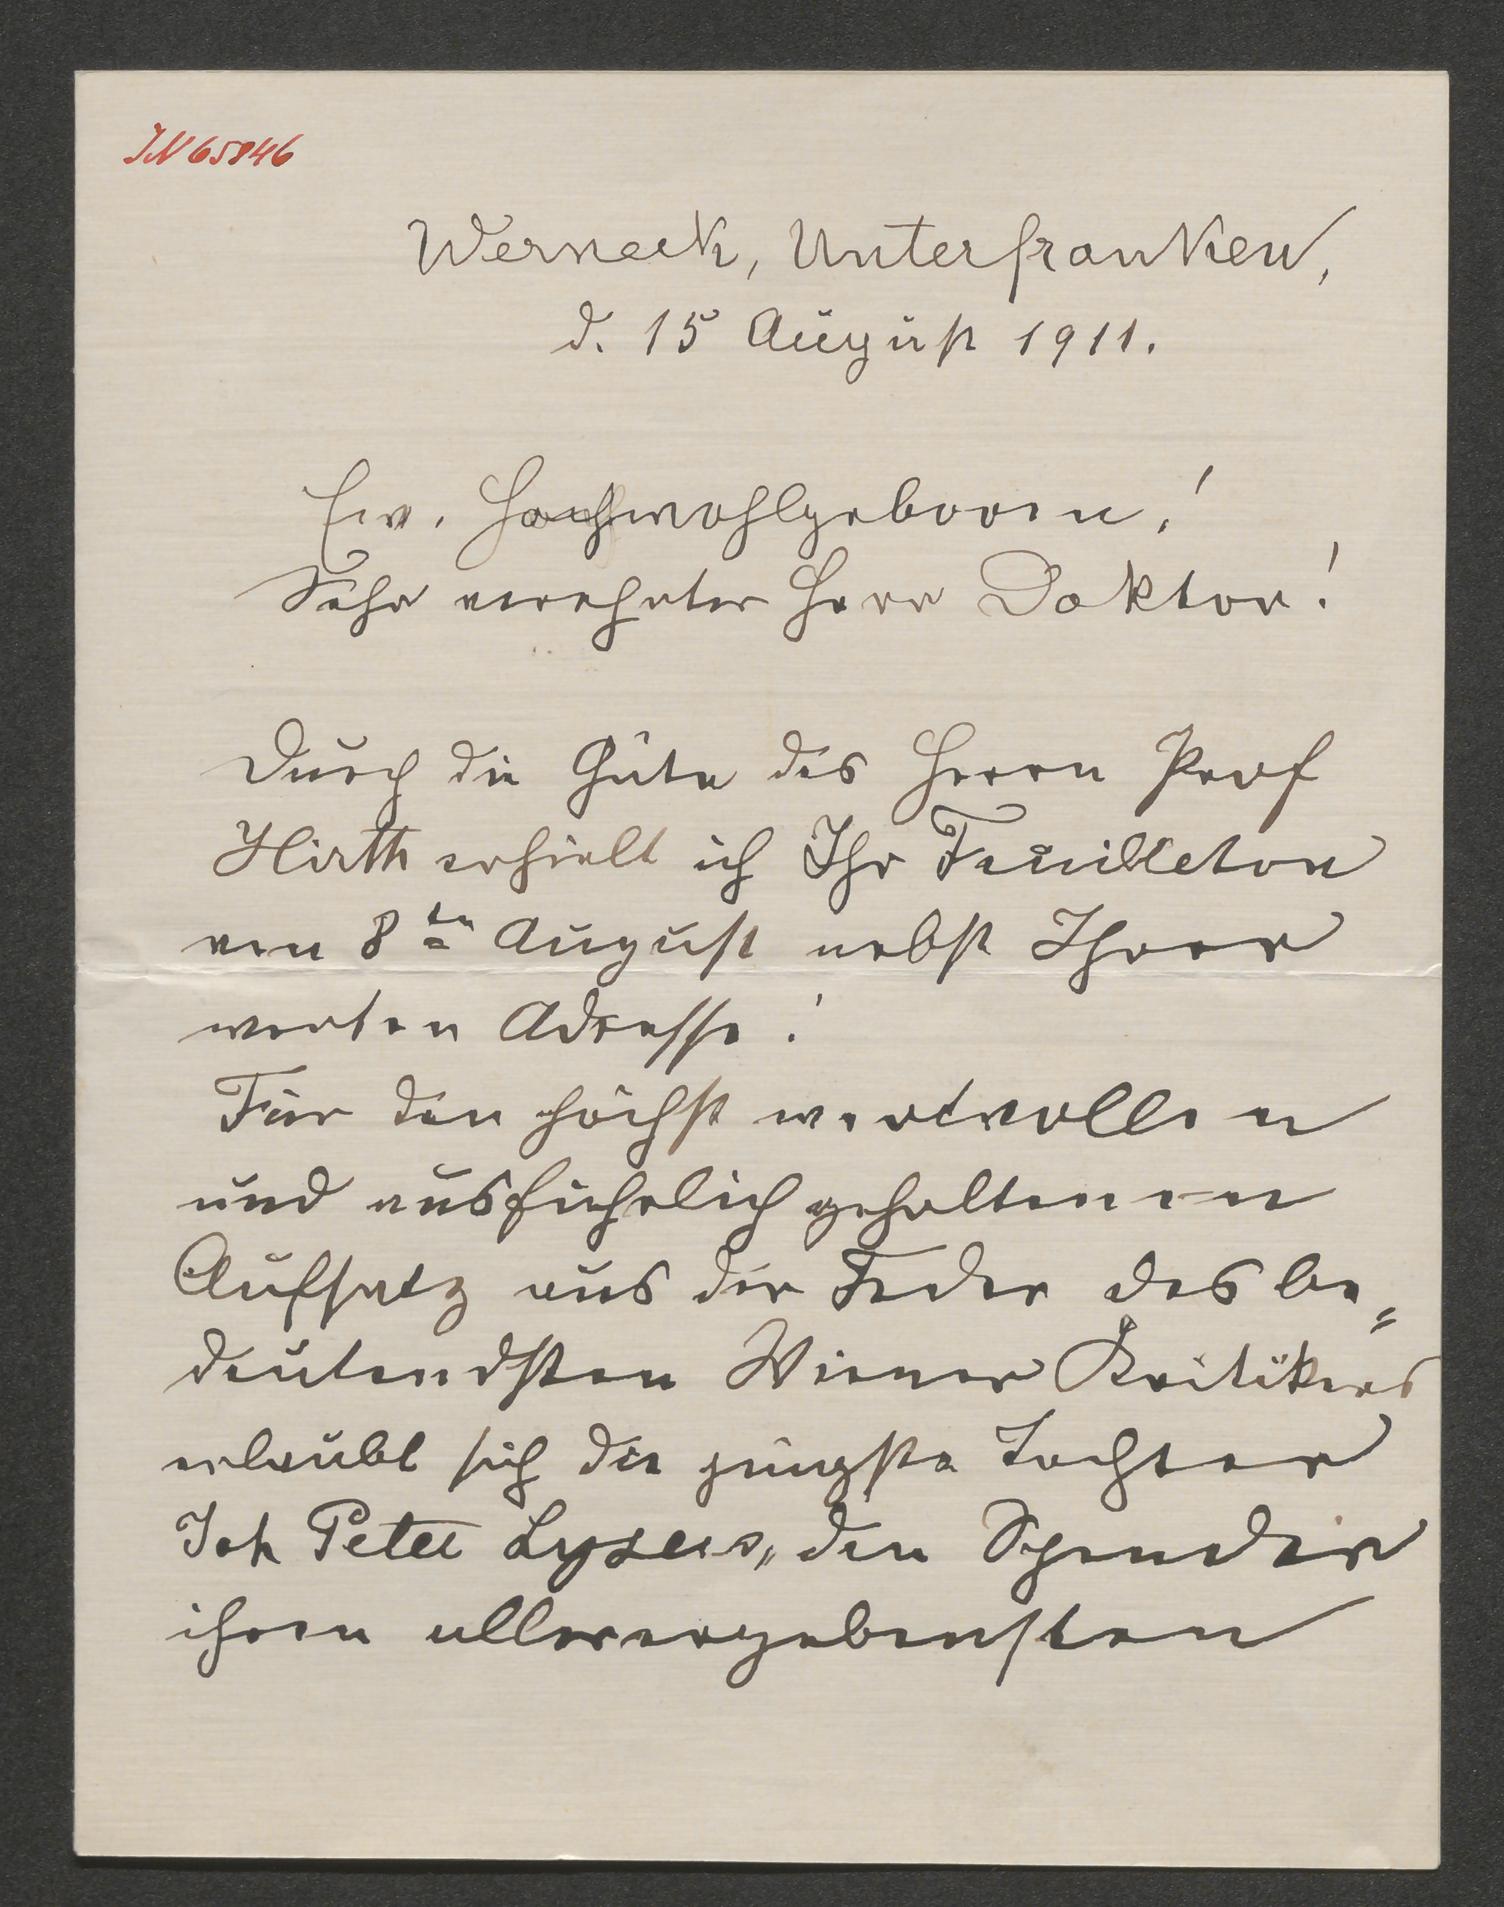 IN 65846
Werneck, Unterfranken,
d. 15 August 1911.
Ew. Hochwohlgeboren!
Sehr verehrter Herr Doktor!
Durch die Güte des Herrn Prof
Hirth erhielt ich Ihr Feuilleton
von 8ten August nebst Ihrer
werten Adresse!
Für den höchst wertvollen
und ausführlich gehaltenen
Aufsatz aus der Feder des be=
deutendsten Wiener Kritikers
erlaubt sich die jüngste Tochter
Joh Peter Lysers, den Spender
ihren allerergebensten